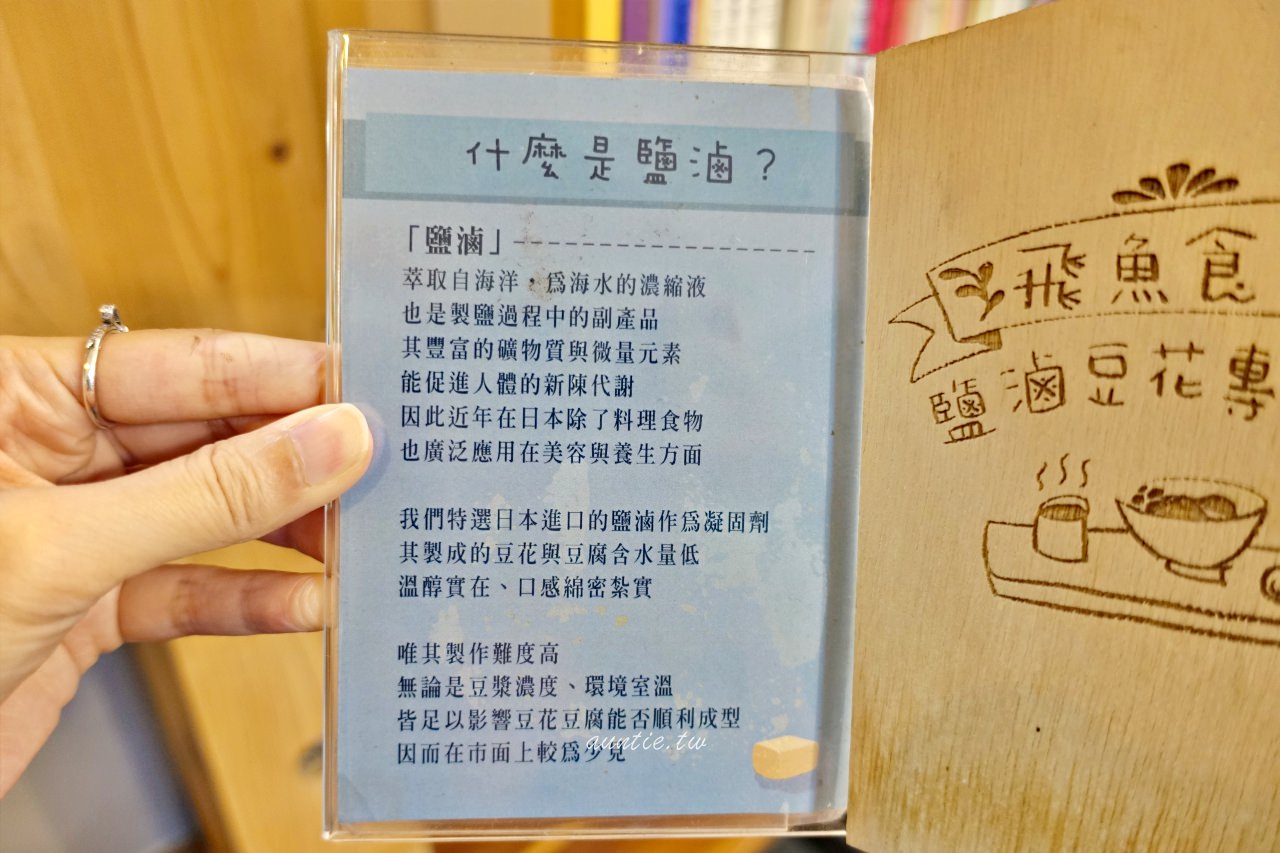 什麼是鹽滷？
「鹽滷」
萃取自海洋，為海水的濃縮液
也是製鹽過程中的副產品
其豐富的礦物質與微量元素
能促進人體的新陳代謝
因此近年在日本除了料理食物
也廣泛應用在美容與養生方面
我們特選日本進口的鹽滷作為凝固劑
其製成的豆花與豆腐含水量低
溫醇實在、口感綿密紮實
唯其製作難度高
無論是豆漿濃度、環境室溫
皆足以影響豆花豆腐能否順利成型
因而在市面上較為少見
auntie.tw
飛魚食
鹽滷豆花專